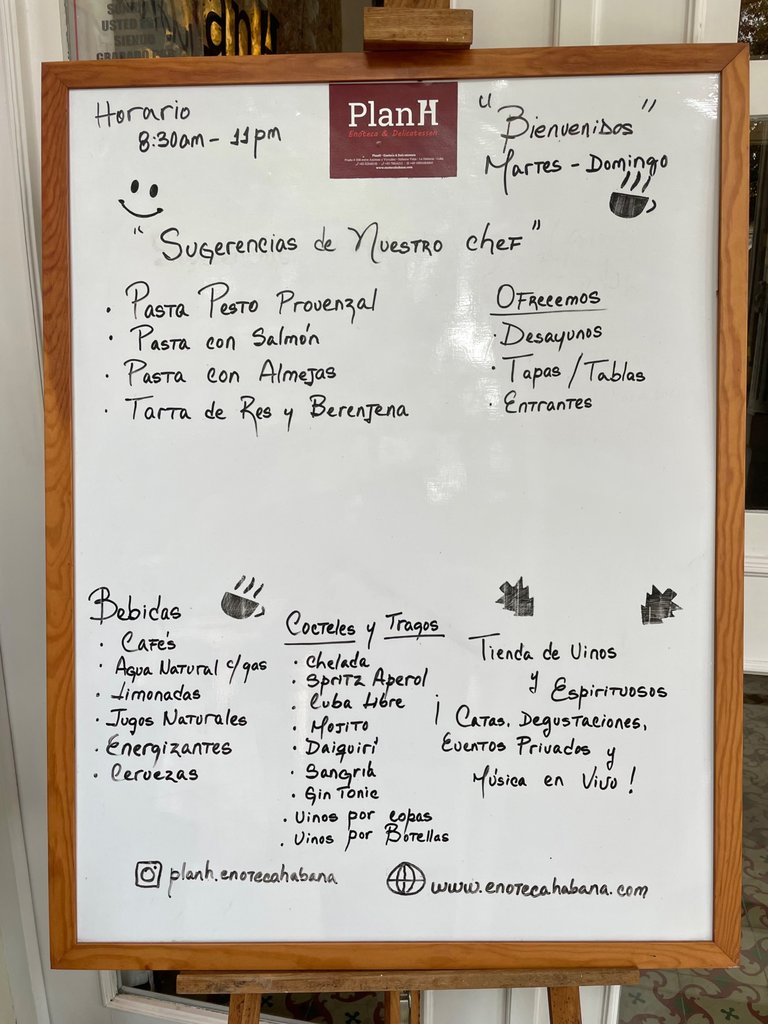 USTED ES
SIENDO
GRABADO POR
Horario
8:30am - 11pm
PlanH
Enoteca & Delicatessen
"Bienvenidos"
Martes - Domingo
"Sugerencias de Nuestro chef"
· Pasta Pesto Provenzal
· Pasta con Salmón
· Pasta con Almejas
· Tarta de Res y Berenjena
Ofrecemos
· Desayunos
· Tapas / Tablas
· Entrantes
Bebidas
· Cafés
· Agua Natural c/gas
· Limonadas
· Jugos Naturales
· Energizantes
· Cervezas
Cocteles y Tragos
· Chelada
· Spritz Aperol
· Cuba Libre
· Mojito
· Daiquirí
· Sangría
· Gin Tonic
· Vinos por copas
· Vinos por Botellas
Tienda de Vinos
y Espirituosos
¡ Catas, Degustaciones,
Eventos Privados y
Música en Vivo !
planh.enotecahabana
www.enotecahabana.com